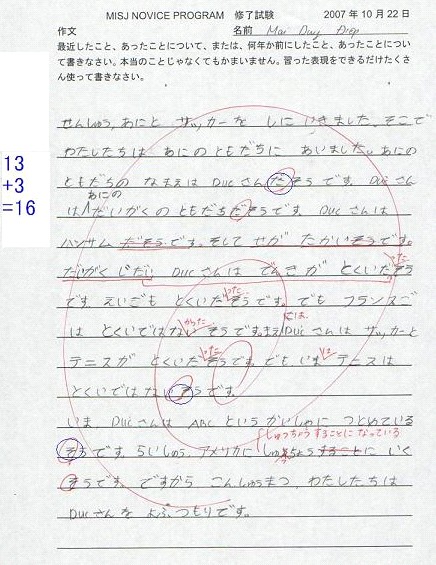 MISJ NOVICE PROGRAM 修了試験 2007年10月22日
作文 名前 Mai Day Diep
最近したこと、あったことについて、または、何年か前にしたこと、あったことについ
て書きなさい。本当のことじゃなくてもかまいません。習った表現をできるだけたくさ
ん使って書きなさい。
せんしゅう、あにと サッカーを しに いきました。そこで
わたしたちは あにの ともだちに あいました。あにの
13
ともだちの なまえは Ducさん だそうです。Ducさん
+3
あにの
は だいがくの ともだちだそうです。Ducさんは
=16
ハンサム だそうです。そして せが たかいそうです。
だいがくじだい Ducさんは でんきが とくいだそう
った
です。えいごも とくいだそうです。でも フランスご
った
かった
には
は とくいではないそうです。まえ Ducさんは サッカーと
テニスが とくいだそうです。でも いま テニスは
った
は
とくいではないそうです。
いま、Ducさんは ABCという かいしゃに つとめている
しゅっちょうすることになっている
そうです。らいしゅう、アメリカに しゅちょうすることに いく
そうです。ですから こんしゅうまつ、わたしたちは
Ducさんを よぶつもりです。